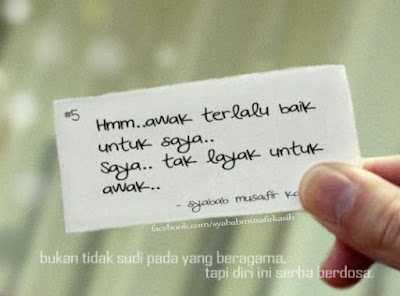 #5
Hmm..awak terlalu baik
untuk saya..
Saya.. tak layak untuk
awak..
- syabab musafir
facebook.com/syababmusafirkasih
bukan tidak sudi pada yang beragama,
tapi diri ini serba berdosa.